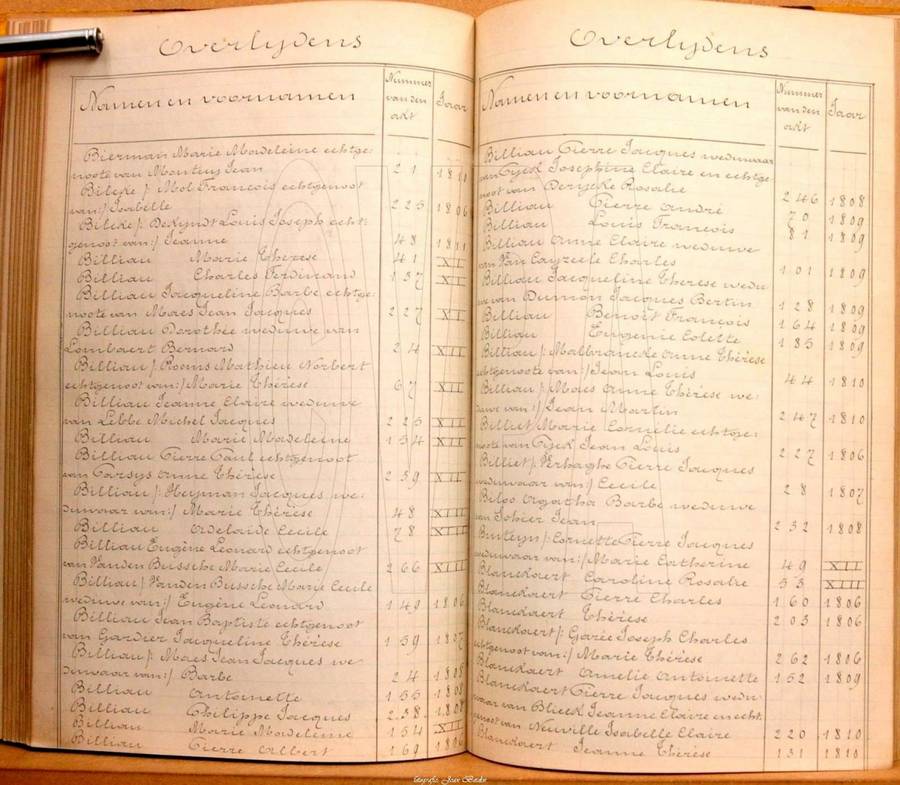 Overlijdens
Nummer
van den
akt
Jaar
Namen en voornamen
Bierman Marie Madeleine echtge-
noote van Jean 21 1810
Bilcke /: Mol Francois echtgenoot
van :/ Isabelle 225 1806
Bilcke /: DeKyndt Louis Joseph echt-
genoot van :/ Jeanne 48 1811
Billiau Marie Thérèse 41 XI
Billiau Charles Ferdinand 137 XI
Billiau Jacqueline Barbe echtge-
noote van Maes Jean Jacques 227 XI
Billiau Dorothée weduwe van
Lombaert Bernard 24 XII
Billiau /: Rooms Mathieu Norbert
echtgenoot van :/ Marie Thérèse 67 XII
Billiau Jeanne Claire weduwe
van Lebbe Michel Jacques 225 XII
Billiau Marie Madeleine 154 XII
Billiau Pierre Paul echtgenoot
van Torsys Anne Thérèse 239 XII
Billiau /: Heyman Jacques we-
duwaar van :/ Marie Thérèse 48 XIII
Billiau Adelaide Cecile 78 XIII
Billiau Eugène Leonard echtgenoot
van Vanden Bussche Marie Cecile 266 XIII
Billiau /: Vanden Bussche Marie Cecile
weduwe van :/ Eugène Leonard 149 1806
Billiau Jean Baptiste echtgenoot
van Gardier Jacqueline Thérèse 159 1807
Billiau /: Maes Jean Jacques we-
duwaar van :/ Barbe 24 1808
Billiau Antoinette 155 1808
Billiau Philippe Jacques 238 1808
Billiau Marie Madeleine 154 XII
Billiau Pierre Albert 169 1806
Overlijdens
Nummer
van den
akt
Jaar
Namen en voornamen
Billiau Pierre Jacques weduwaar
van Josephine Claire en echtge-
noot van Derycke Rosalie 246 1808
Billiau Pierre André 70 1809
Billiau Louis Francois 81 1809
Billiau Anne Claire weduwe
van Van Cayzeele Charles 101 1809
Billiau Jacqueline Thérèse wedu-
we van Dumon Jacques Bertin 128 1809
Billiau Benoît François 164 1809
Billiau Eugenie Colette 185 1809
Billiau /: Malbrancke Anne Thérèse
echtgenoote van :/ Jean Louis 44 1810
Billiau /: Maes Anne Thérèse we-
duwe van :/ Jean Martin 247 1810
Billiet Marie Cornélie echtge-
noote van Jean Louis 227 1806
Billiet /: Verhaghe Pierre Jacques
weduwaar van :/ Cecile 28 1807
Biloo Agatha Barbe weduwe
van Sohier Jean 232 1808
/: Cornette Pierre Jacques
weduwaar van :/ Marie Catherine 49 XII
Blanckaert Caroline Rosalie 53 XIII
Blanckaert Pierre Charles 160 1806
Blanckaert Thérèse 203 1806
Blanckaert /: Garée Joseph Charles
echtgenoot van :/ Marie Thérèse 262 1806
Blanckaert Amelie Antoinette 152 1809
Blanckaert Pierre Jacques wedu-
waar van Blieck Jeanne Claire en echt-
genoot van Neuville Isabelle Claire 220 1810
Blanckaert Jeanne Thérèse 131 1810